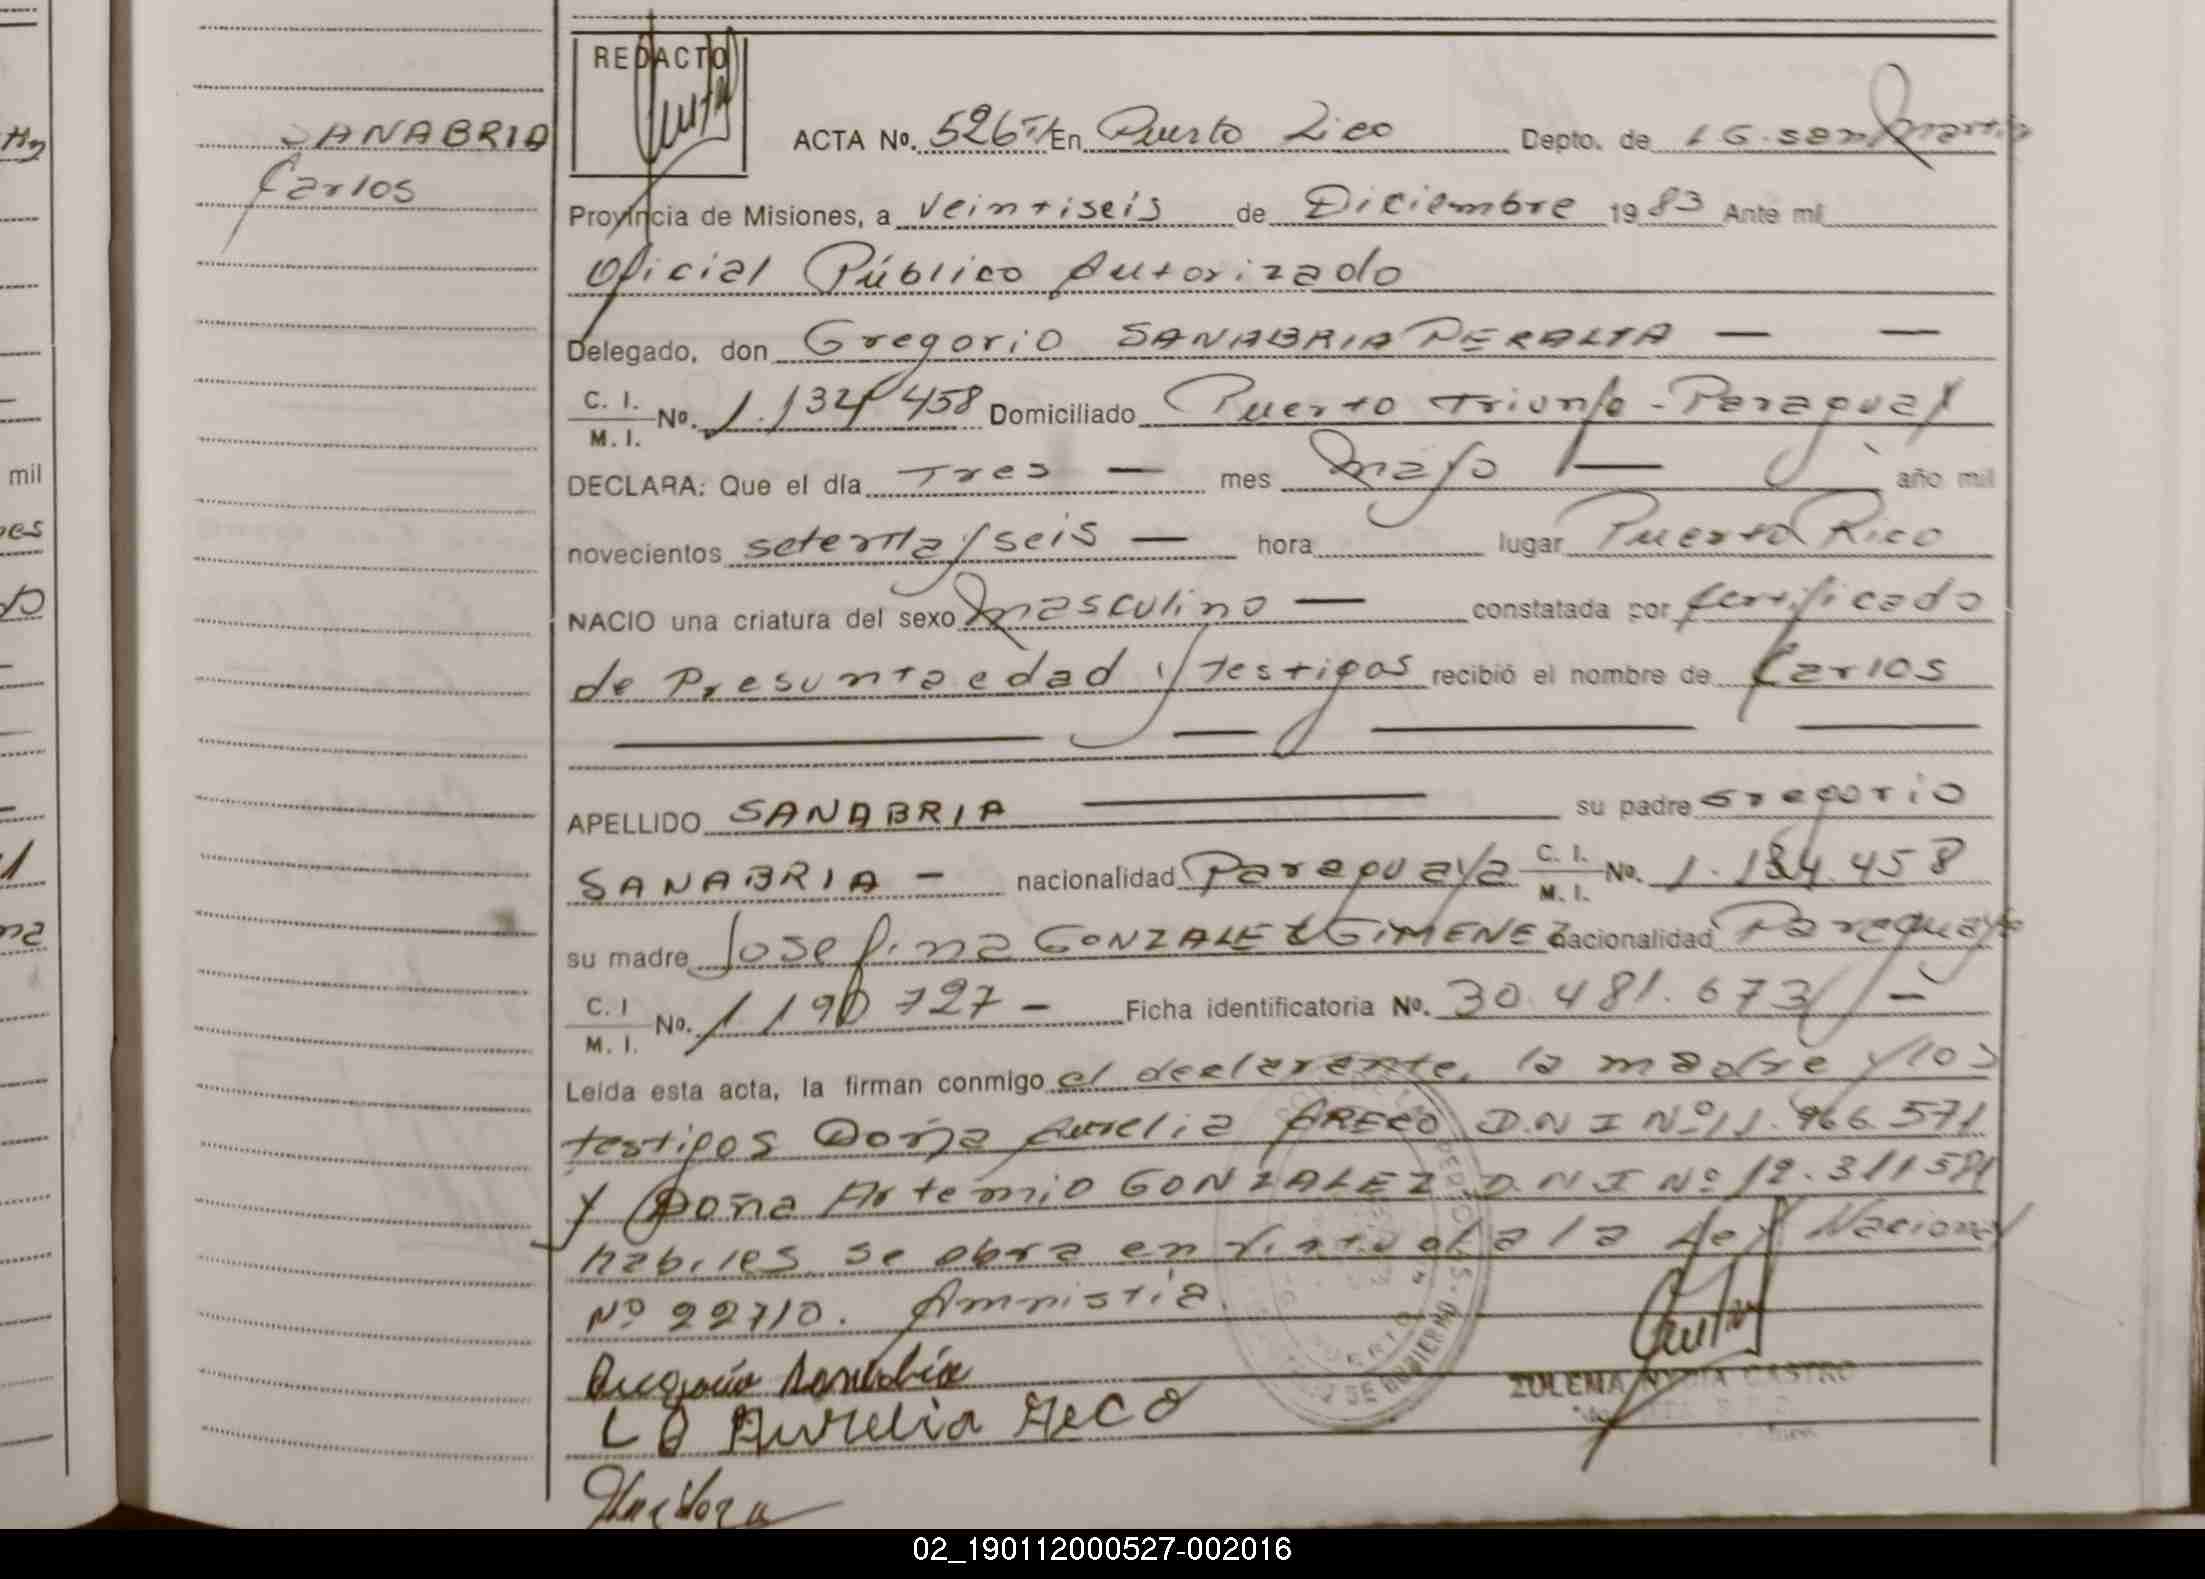 SANABRIA
Carlos
mil
REDACTO
ACTA Nº. 526 TI En Puerto Rico Depto. de L G. san Martin
Provincia de Misiones, a veintiseis de Diciembre 1983 Ante mí
Oficial Público Autorizado
Delegado, don Gregorio SANABRIA PERALTA — —
C. I. / M. I. Nº. 1.134 458 Domiciliado Puerto Triunfo - Paraguay
DECLARA: Que el día Tres — mes Mayo — año mil
novecientos setenta y seis — hora lugar Puerto Rico
NACIO una criatura del sexo Masculino — constatada por Certificado
de Presunta edad y testigos recibió el nombre de Carlos
APELLIDO SANABRIA — su padre Gregorio
SANABRIA — nacionalidad Paraguaya C. I. / M. I. Nº. 1.134.458
su madre Josefina GONZALEZ GIMENEZ nacionalidad Paraguaya
C. I / M. I. Nº. 1 190 727 — Ficha identificatoria Nº. 30.481.673 —
Leída esta acta, la firman conmigo el declarante, la madre y los
testigos Doña Aurelia ARECO D.N I Nº 11.966.571
y Doña Artemio GONZALEZ D.N I Nº 12.311581
habiles se obra en virtud a la Ley Nacional
Nº 22710. Amnistia.
Gregorio Sanabria
L G Aurelia Areco
ZULEMA NYDIA CASTRO
02_190112000527-002016